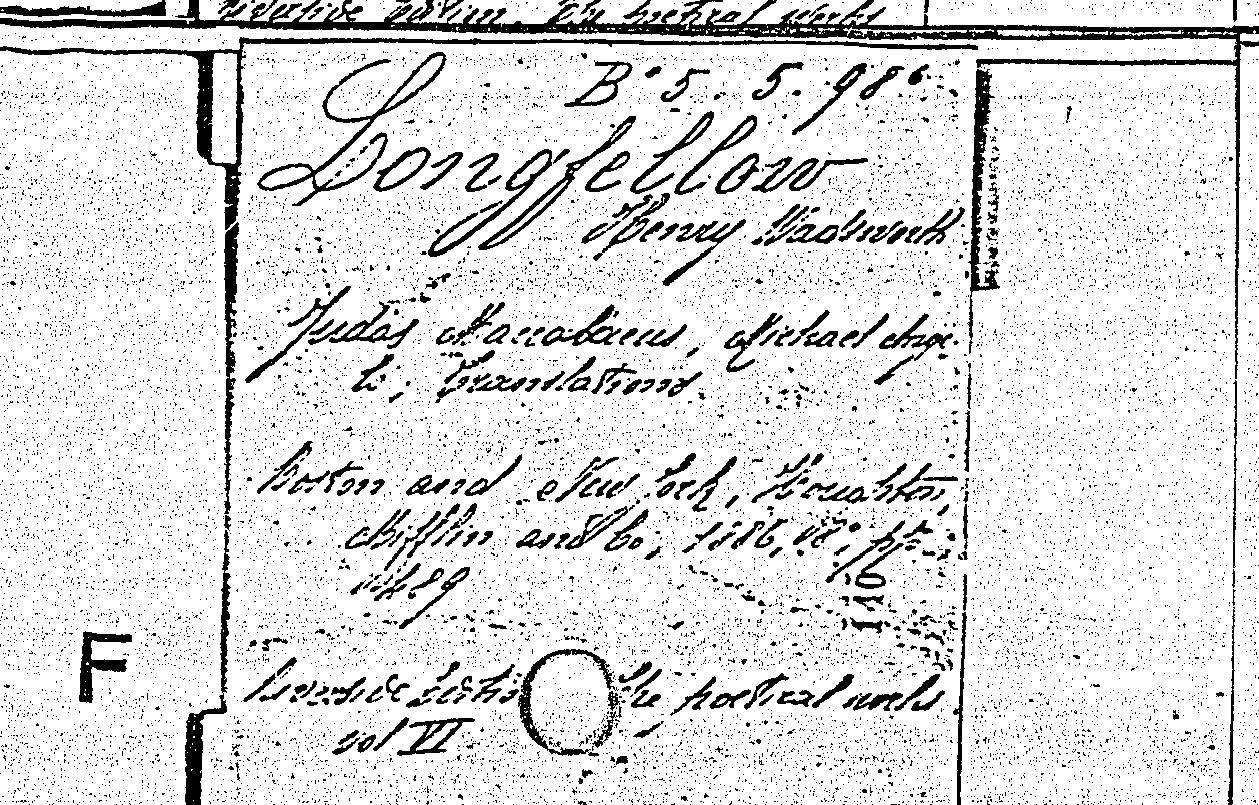 Riverside Edition. The poetical works
B° 5. 5. 986
Longfellow
Henry Wadsworth
Judas Maccabaeus, Michael Ange-
lo, Translations
Boston and New York, Houghton,
Mifflin and Co, 1886, 8°,
489
116
Riverside Editio The poetical works
vol VI
F